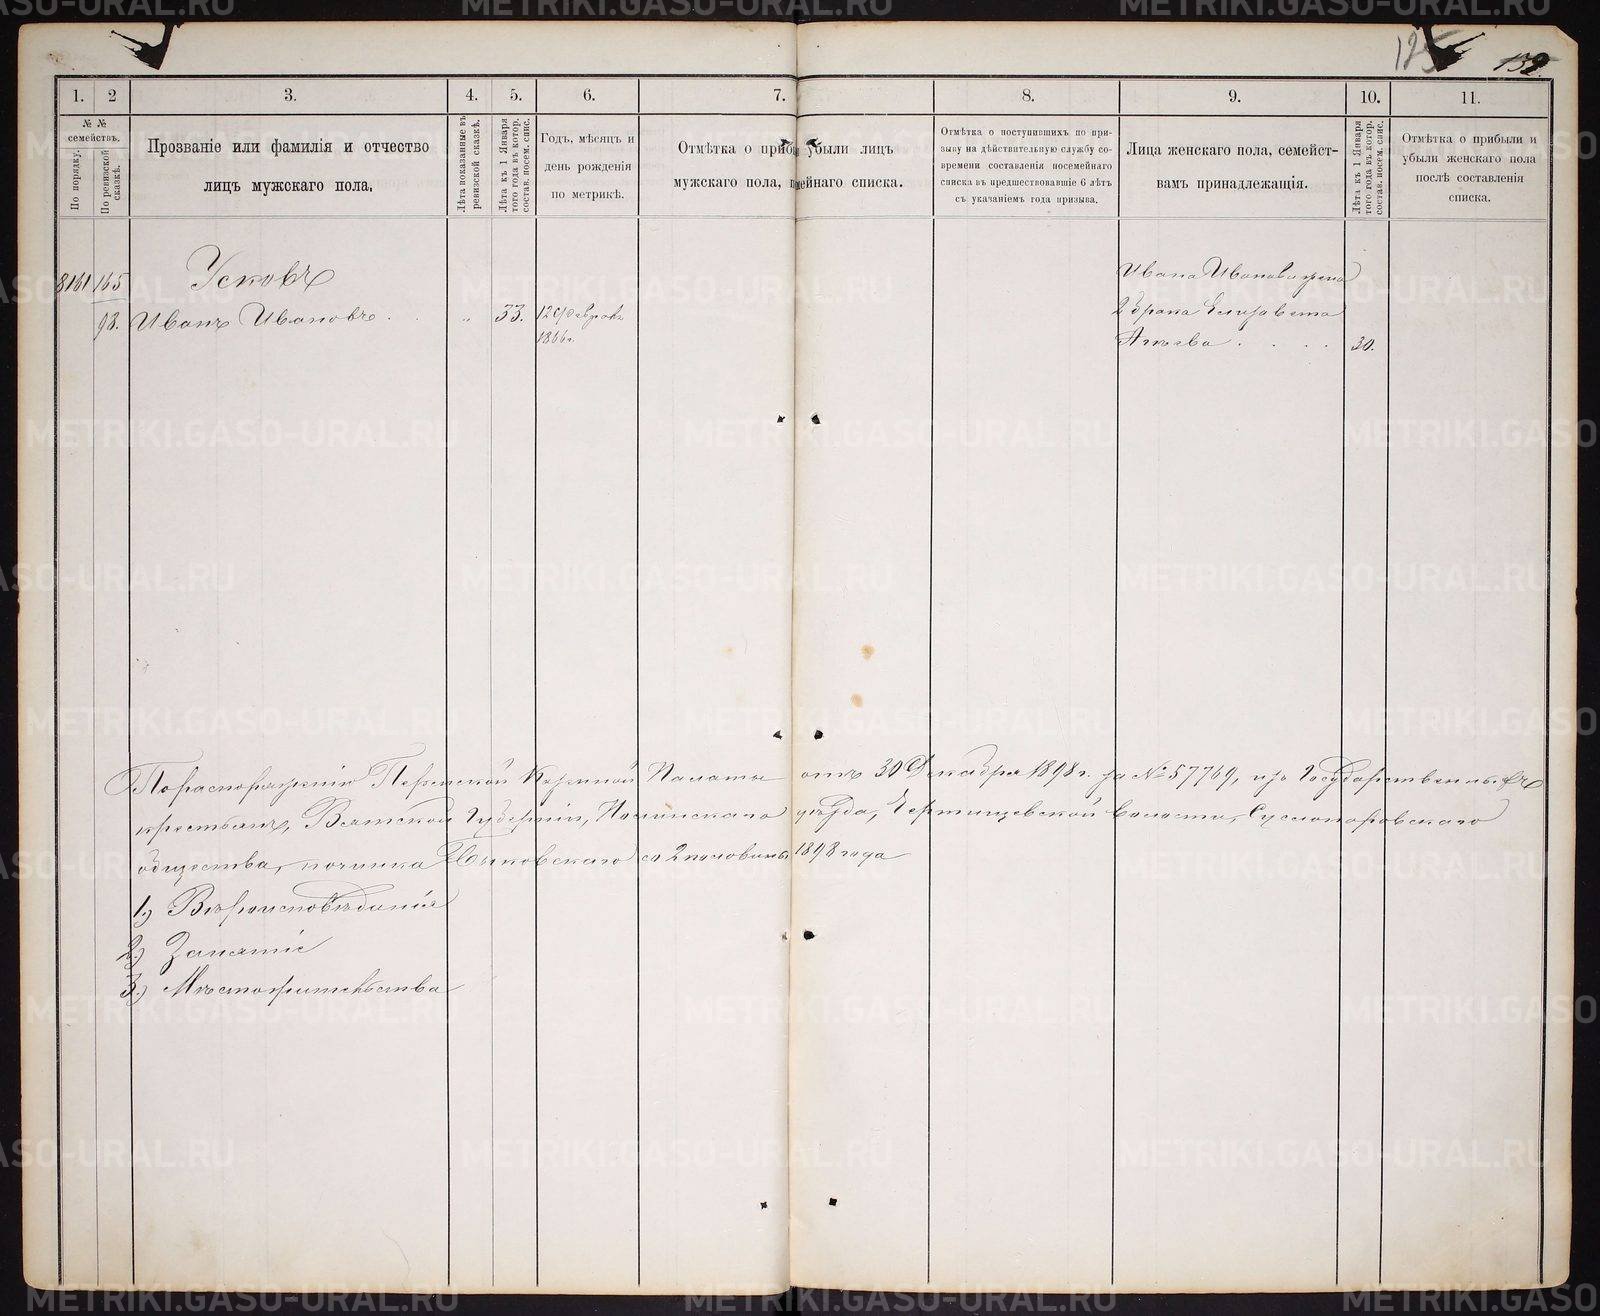 125 132.
1. 2 3. 4. 5. 6. 7. 8. 9. 10. 11.
№ №
семействъ.
По порядку.
По ревизской сказкѣ.
Прозваніе или фамилія и отчество
лицъ мужскаго пола.
Лѣта показанные въ
ревизской сказкѣ.
Лѣта къ 1 Января
того года въ котор.
состав. посем. спис.
Годъ, мѣсяцъ и
день рожденія
по метрикѣ.
Отмѣтка о приб убыли лицъ
мужскаго пола, мейнаго списка.
Отмѣтка о поступившихъ по при-
зыву на дѣйствительную службу со-
времени составленія посемейнаго
списка въ предшествовавшіе 6 лѣтъ
съ указаніемъ года призыва.
Лица женскаго пола, семейст-
вамъ принадлежащія.
Лѣта къ 1 Января
того года въ котор.
состав. посем. спис.
Отмѣтка о прибыли и
убыли женскаго пола
послѣ составленія
списка.
8161 165 Усковъ
98. Иванъ Ивановъ . . „ 33. 12 Февраля
1866 г.
Ивана Иванова жена
2 брака Елизавета
. . . . 30.
По распоряженію Пермской Казенной Палаты отъ 30 Декабря 1898 г. за № 57769, изъ Государственныхъ
крестьянъ, Вятской Губерніи, Нолинскаго уѣзда, волости,
общества, починка со 2 половины 1898 года
1.) Вѣроисповѣданія
2.) Занятіе
3.) Мѣстожительства
METRIKI.GASO-URAL.RU